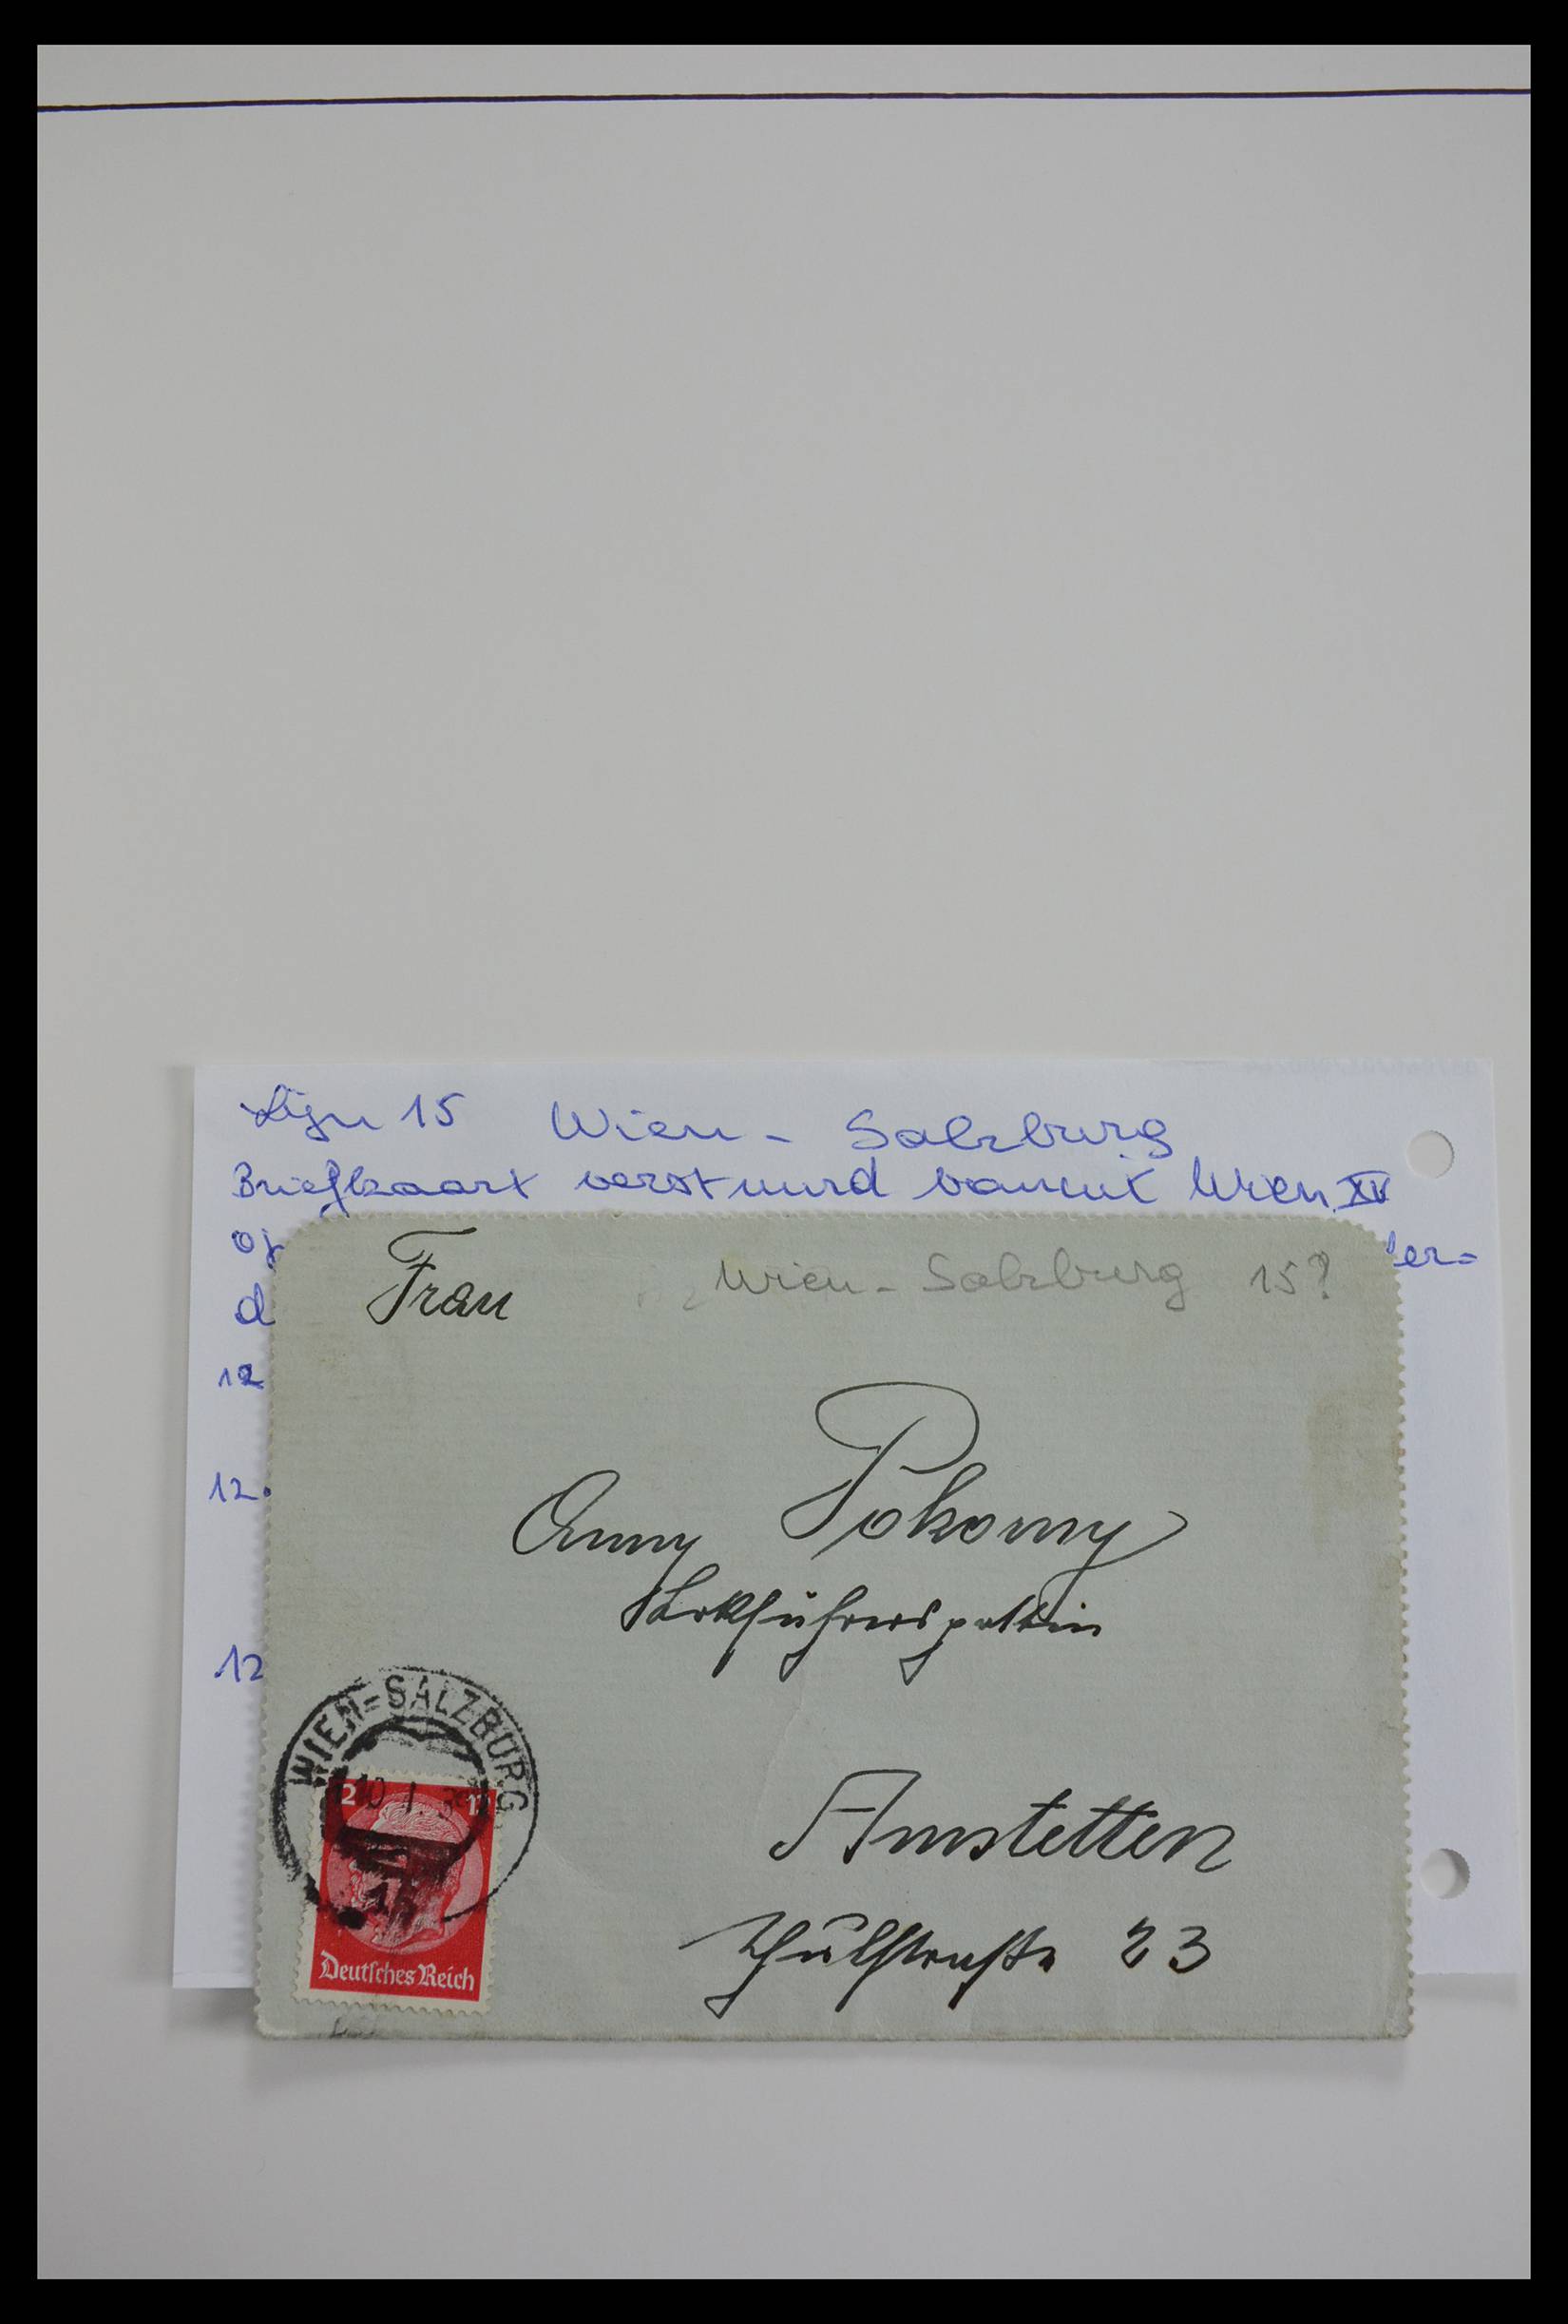 Lijn 15 Wien - Salzburg
Briefkaart verstuurd vanuit Wien XV
op
er-
d
12
12.
12
Frau
Wien - Salzburg 15?
Anny Pokorny
Lokführersgattin
Amstetten
Schulstraße 23
WIEN-SALZBURG
10 I 39
15
12
Deutsches Reich